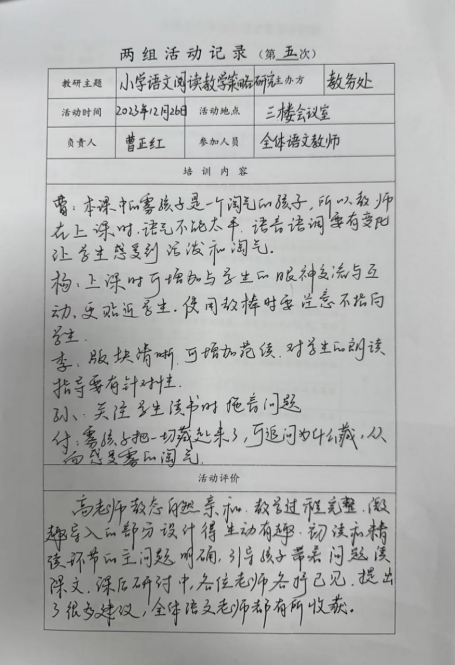 两组活动记录（第五次）
教研主题 小学语文阅读教学策略研究 主办方 教务处
活动时间 2023年12月26日 活动地点 三楼会议室
负责人 曹正红 参加人员 全体语文教师
培训内容
曹：本课中的雾孩子是一个淘气的孩子，所以教师
在上课时，语气不能太平，语言语调要有变化
让学生感受到活泼和淘气。
杨：上课时可增加与学生的眼神交流与互
动，更贴近学生，使用教棒时要注意不指向
学生.
李：版块清晰，可增加范读，对学生的朗读
指导要有针对性.
孙：关注学生读书时拖音问题
付：雾孩子把一切藏起来了，可追问为什么藏，从
而感受雾的淘气.
活动评价
高老师教态自然亲和，教学过程完整，激
趣导入的部分设计得生动有趣，初读和精
读环节的主问题明确，引导孩子带着问题读
课文，课后研讨中，各位老师各抒己见，提出
了很多建议，全体语文老师都有所收获。